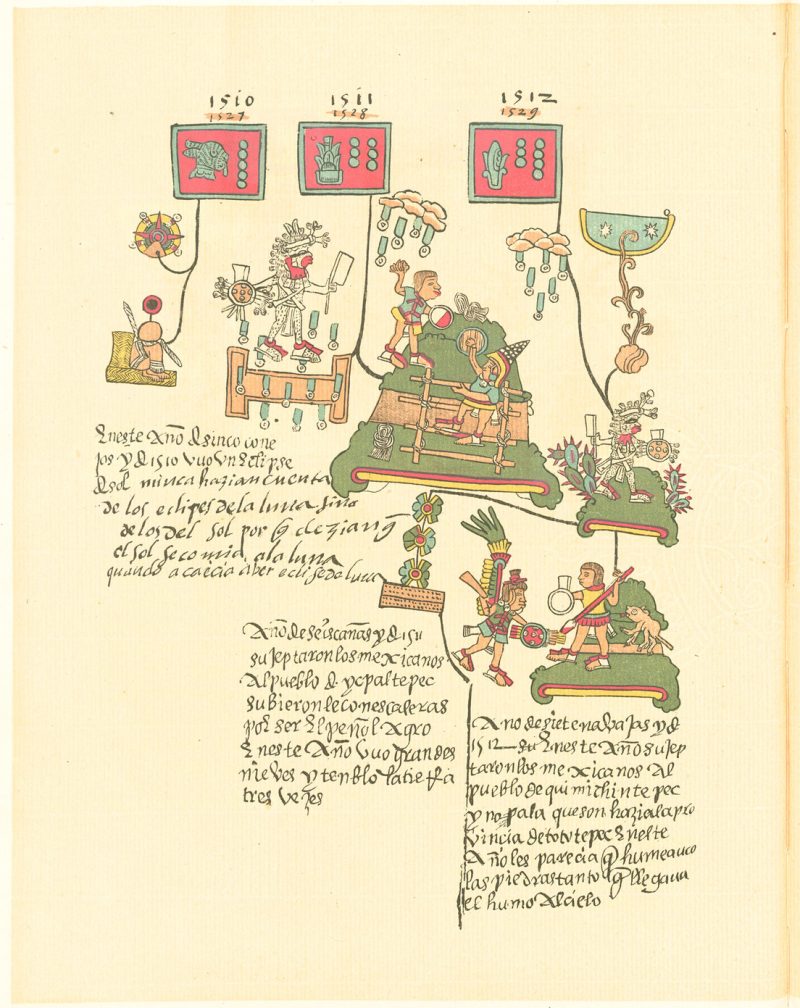 1510
1527
1511
1528
1512
1529
Eneste Año d sinco cone
jos y d 1510 vuo vn eclipse
d sol nunca hazian cuenta
de los eclipes de la luna sino
de los del sol por q dezian q
el sol se comia a la luna
quando acaecia aber eclise de luna
Año de seis cañas y d 1511
sujeptaron los mexicanos
Al pueblo d ycpaltepec
subieronle con escaleras
por ser El peñol Agro
Eneste Año vuo grandes
nieves y tenblo la tierra
tres vezes
Ano de siete nabajas y d
1512 Eneste Año sujep
taron los mexicanos Al
pueblo de quimichintepec
y nopala que son hazia la pro
vincia de tototepec Eneste
Año les parecia q humeauā
las piedras tanto q llegaua
el humo Al cielo